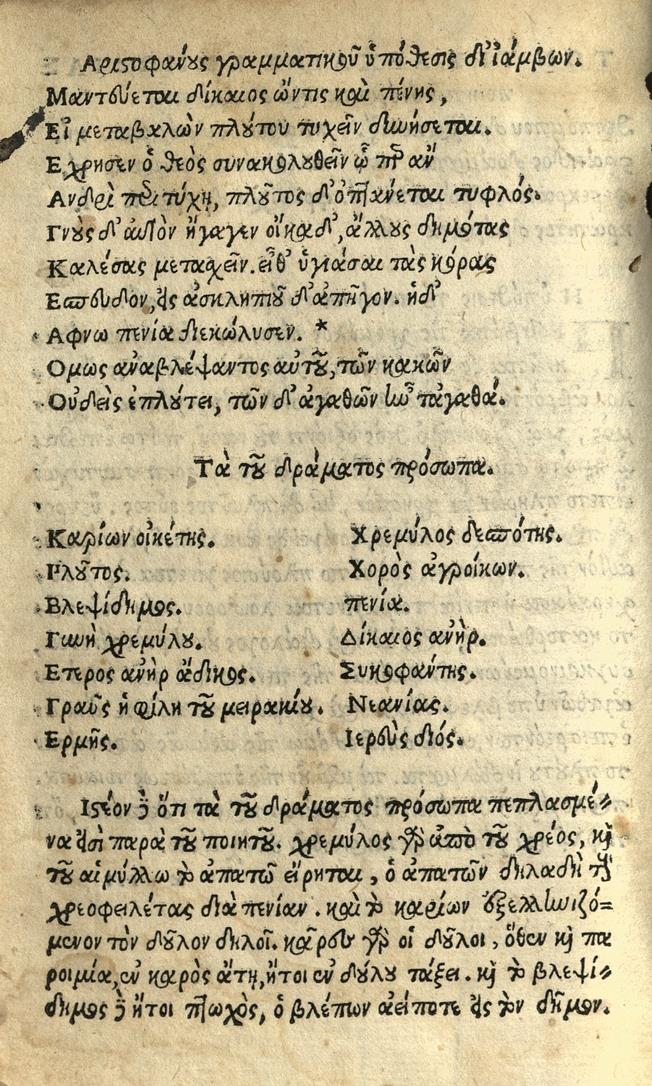 Αριστοφανους γραμματικοῦ ὑπόθεσις δι' ἰάμβων.
Μαντεύεται δίκαιος ὤν τις καὶ πένης,
Εἰ μεταβαλὼν πλούτου τυχεῖν δυνήσεται.
Εχρησεν ὁ θεὸς συνακολουθεῖν ᾧ περ ἀν
Ανδρὶ περιτύχῃ, πλοῦτος δ' ὀπτάνεται τυφλός.
Γνοὺς δ' αὐτὸν ἤγαγεν οἴκαδ', ἄλλους δημότας
Καλέσας μετασχεῖν. εἶθ' ὑγιάσαι τὰς κόρας
Εσπευδον, εἰς ἀσκληπιοῦ δ' ἀπῆγον. ἡ δ'
Αφνω πενία διεκώλυσεν. *
Ομως ἀναβλέψαντος αὐτοῦ, τῶν κακῶν
Οὐδεὶς ἐπλούτει, τῶν δ' ἀγαθῶν ἦν τἀγαθά.
Τὰ τοῦ δράματος πρόσωπα.
Καρίων οἰκέτης. Χρεμύλος δεσπότης.
Πλοῦτος. Χορὸς ἀγροίκων.
Βλεψίδημος. πενία.
Γυνὴ χρεμύλου. Δίκαιος ἀνὴρ.
Ετερος ἀνὴρ ἄδικος. Συκοφαντης.
Γραῦς ἡ φίλη τοῦ μειρακίου. Νεανίας.
Ερμῆς. Ιερεὺς διός.
Ιστέον δὲ ὅτι τὰ τοῦ δράματος πρόσωπα πεπλασμέ-
να εἰσὶ παρὰ τοῦ ποιητοῦ. χρεμύλος γὰρ ἀπὸ τοῦ χρέος, καὶ
τοῦ αἱμύλλω τὸ ἀπατῶ εἴρηται, ὁ ἀπατῶν δηλαδὴ τοὺς
χρεοφειλέτας διὰ πενίαν. καὶ τὸ καρίων ἐξελληνιζό-
μενον τὸν δοῦλον δηλοῖ. κᾶρες γὰρ οἱ δοῦλοι, ὅθεν καὶ πα
ροιμία, ἐν καρὸς αἴσῃ, ἤτοι ἐν δούλου τάξει. καὶ τὸ βλεψί-
δημος δὲ ἤτοι πτωχὸς, ὁ βλέπων ἀείποτε εἰς τὸν δῆμον.